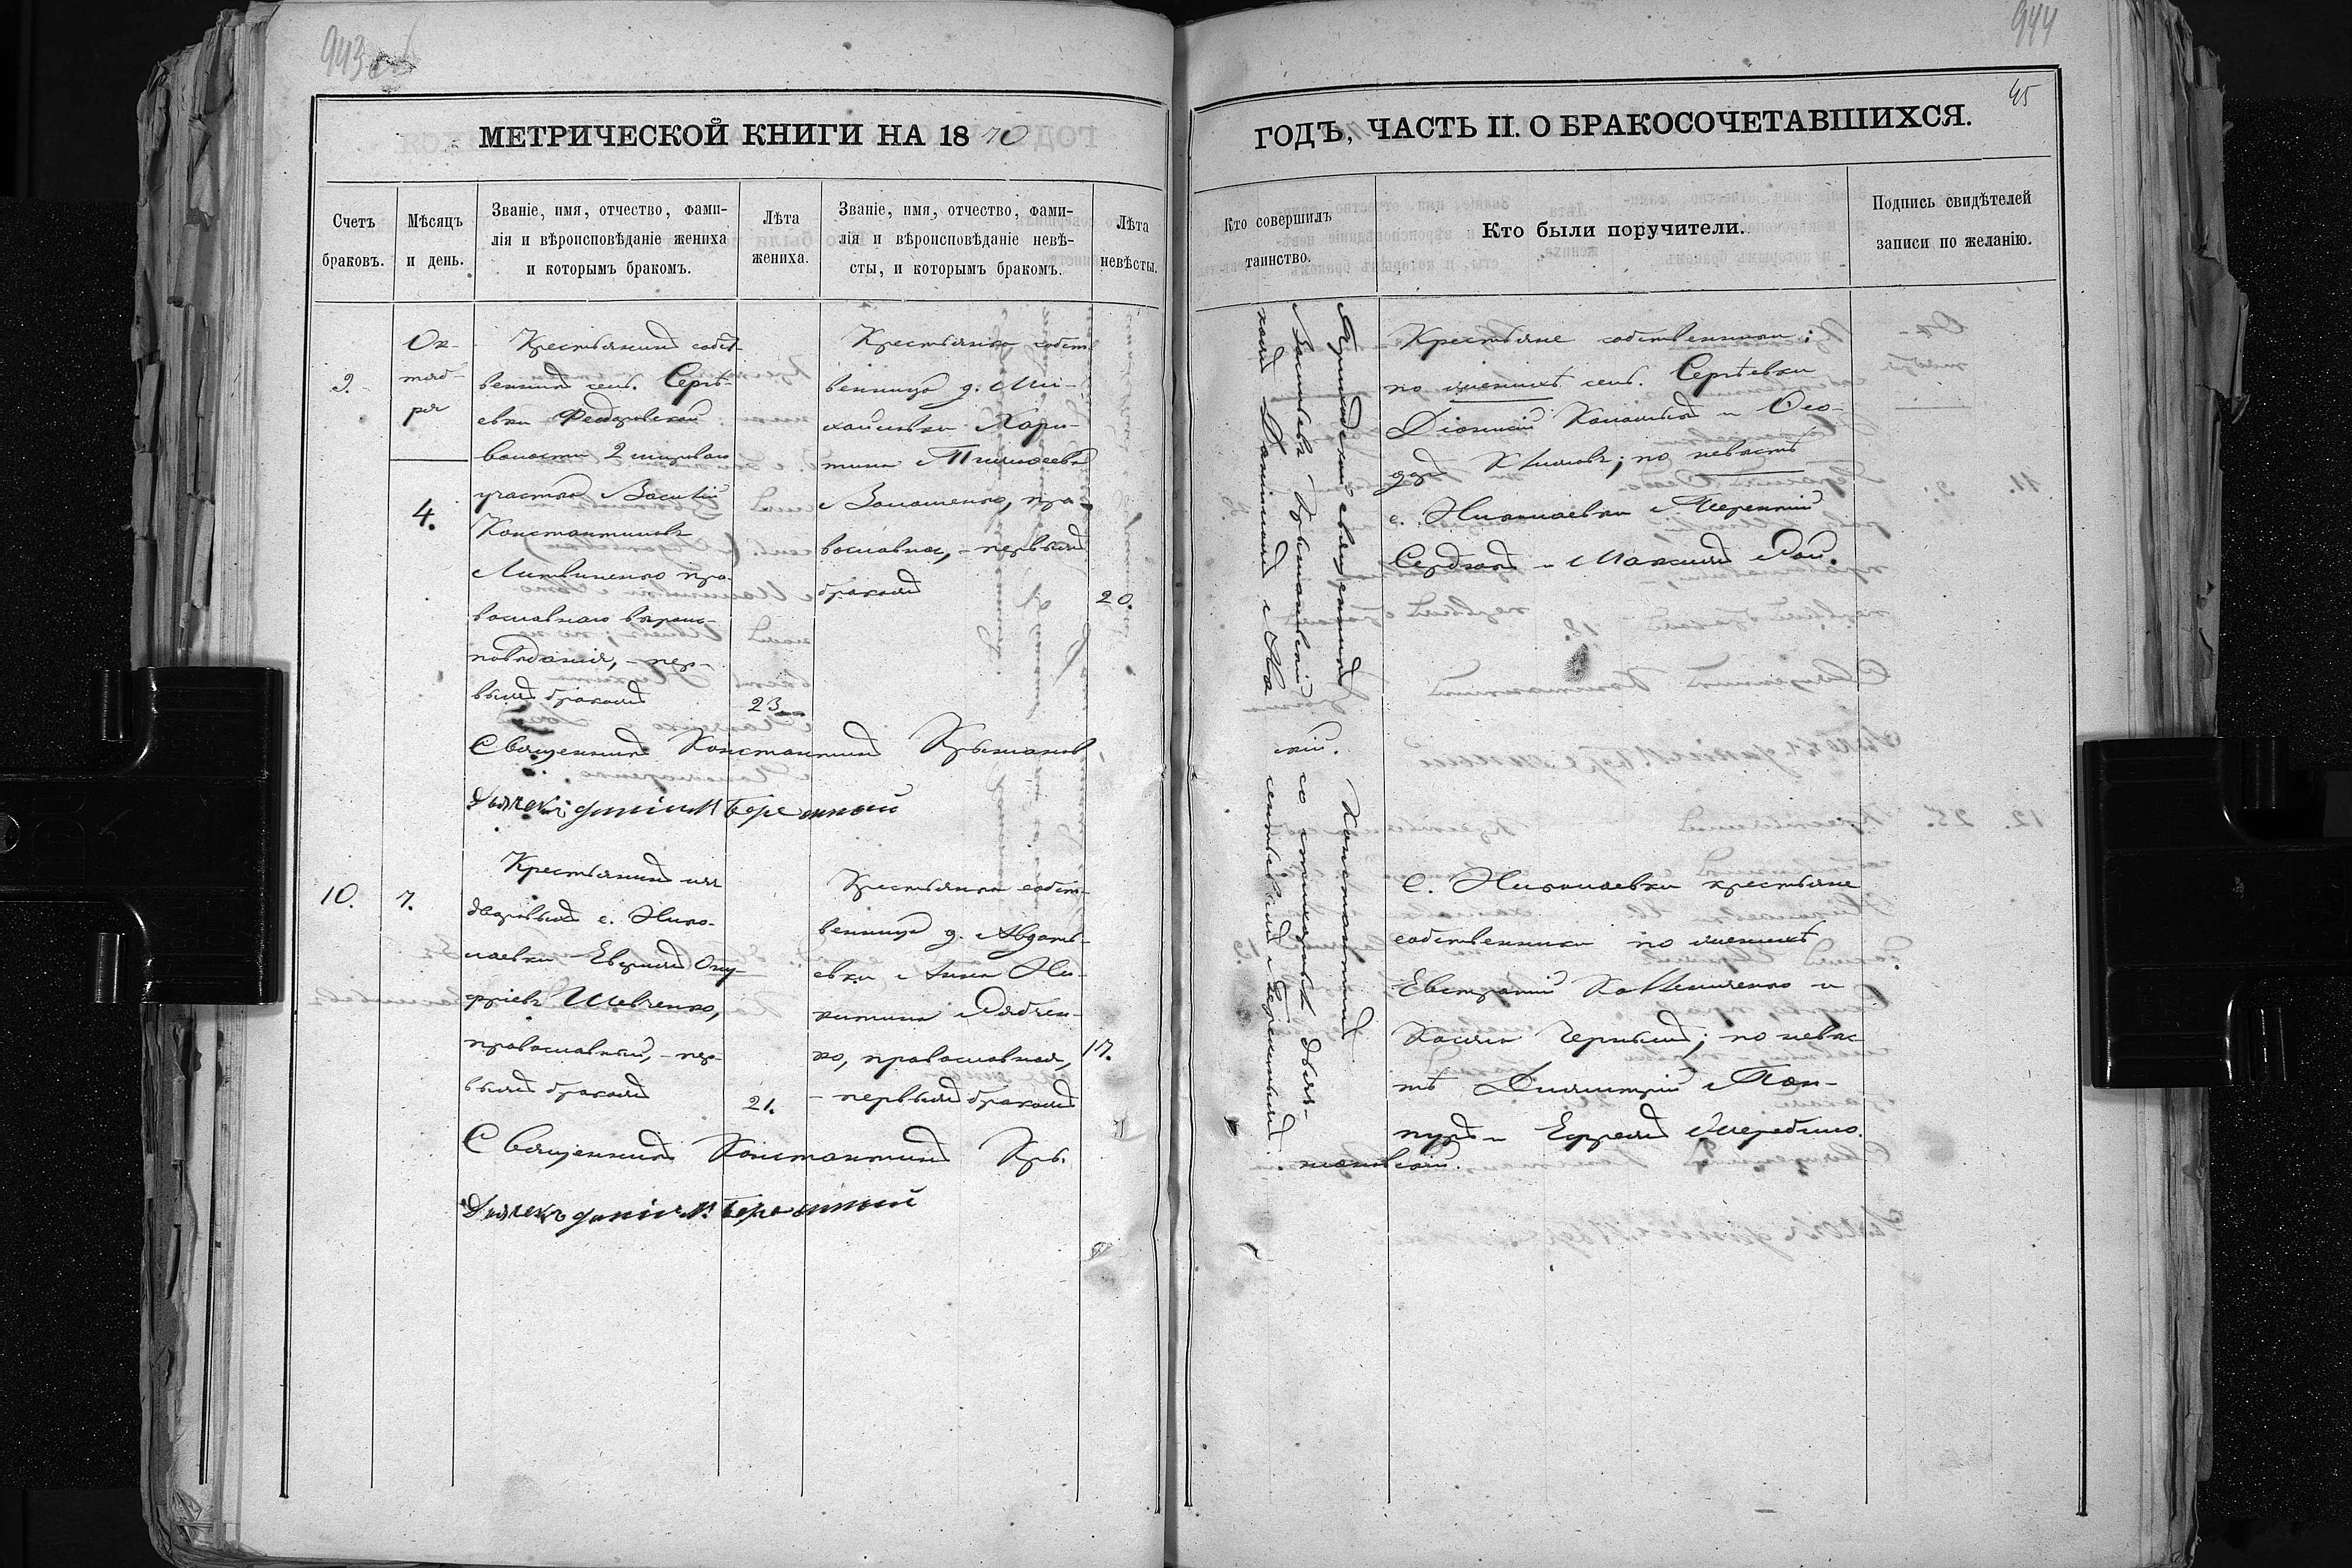 943 об
944
45
МЕТРИЧЕСКОЙ КНИГИ НА 1870
ГОДЪ, ЧАСТЬ II. О БРАКОСОЧЕТАВШИХСЯ.
Счетъ
браковъ.
Мѣсяцъ
и день.
Званіе, имя, отчество, фами-
лія и вѣроисповѣданіе жениха
и которымъ бракомъ.
Лѣта
жениха.
Званіе, имя, отчество, фами-
лія и вѣроисповѣданіе невѣ-
сты, и которымъ бракомъ.
Лѣта
невѣсты.
Кто совершилъ
таинство.
Кто были поручители.
Подпись свидѣтелей
записи по желанію.
9.
Ок-
тяб-
ря
4.
Крестьянинъ собст-
венникъ сел. Сергѣ-
евки Феодоровской
волости 2 мироваго
участка Василій
Константиновъ
Литвиненко пра-
вославнаго вѣроис-
повѣданія, - пер-
вымъ бракомъ
23
Крестьянка собст-
венница д. Ми-
хайловки Хари-
тина Тимофеева
Золашенко, пра-
вославная, - первымъ
бракомъ
20.
Приходскій священникъ Константинъ
Васильевъ Крыжановскій со псаломщ. дьяч-
комъ Даніиломъ Бережнымъ.
Крестьяне собственники:
по женихѣ сел. Сергѣевки
Діонисій Коломыецъ и Ѳео-
доръ Климовъ; по невѣстѣ
с. Николаевки Терентій
Сердюкъ и Максимъ Рай.
Священникъ Константинъ Крыжанов
скій.
Дьячекъ Даніилъ Бережный
10.
7.
Крестьянинъ изъ
дворовыхъ с. Нико-
лаевки Ефремъ Ону-
фріевъ Шевченко,
православный, - пер-
вымъ бракомъ
21.
Крестьянка собст-
венница д. Авдоть-
евки Анна Ни-
китина Рябчен-
ко, православная,
- первымъ бракомъ
17.
С. Николаевки крестьяне
собственники по женихѣ
Евстратій Коломіченко и
Косьма Черный; по невѣс
тѣ Димитрій
и Ефремъ
Священникъ Константинъ Кры-
жановскій.
Дьячекъ Даніилъ Бережный